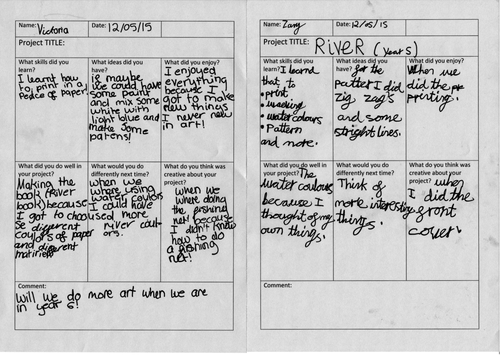 Name: Victoria
Date: 12/05/15
Project TITLE:
What skills did you
learn?
I learnt how
to print in a
Peace of paper!
What ideas did you
have?
is maybe
we could have
some paint
and mix some
white with
light blue and
make some
patens!
What did you enjoy?
I enjoyed
everything
because I
got to make
new things
I never new
in art!
What did you do well in
your project?
Making the
book (river
book) because
I got to choo
se different
coulors of paper
and different
matiriels
What would you do
differently next time?
when we
where using
water coulors
I could have
used more
river coul-
ors.
What do you think was
creative about your
project?
when we
where doing
the fishing
net! because
I didn't know
how to do
a fishing
net!
Comment:
will we do more art when we are
in year 6!
Name: Zany
Date: 12/05/15
Project TITLE: RIVER (year 5)
What skills did you
learn? I learnd
that to
• print
• weaving
• water colours
• Pattern
and more.
What ideas did you
have? for the
patter I did
zig zag's
and some
stright lines.
What did you enjoy?
When we
did the
printing.
What did you do well in
your project? The
water coulours
because I
thought of my
own things.
What would you do
differently next time?
Think of
more interesting
things.
What do you think was
creative about your
project? when
I did the
front
cover.
Comment: